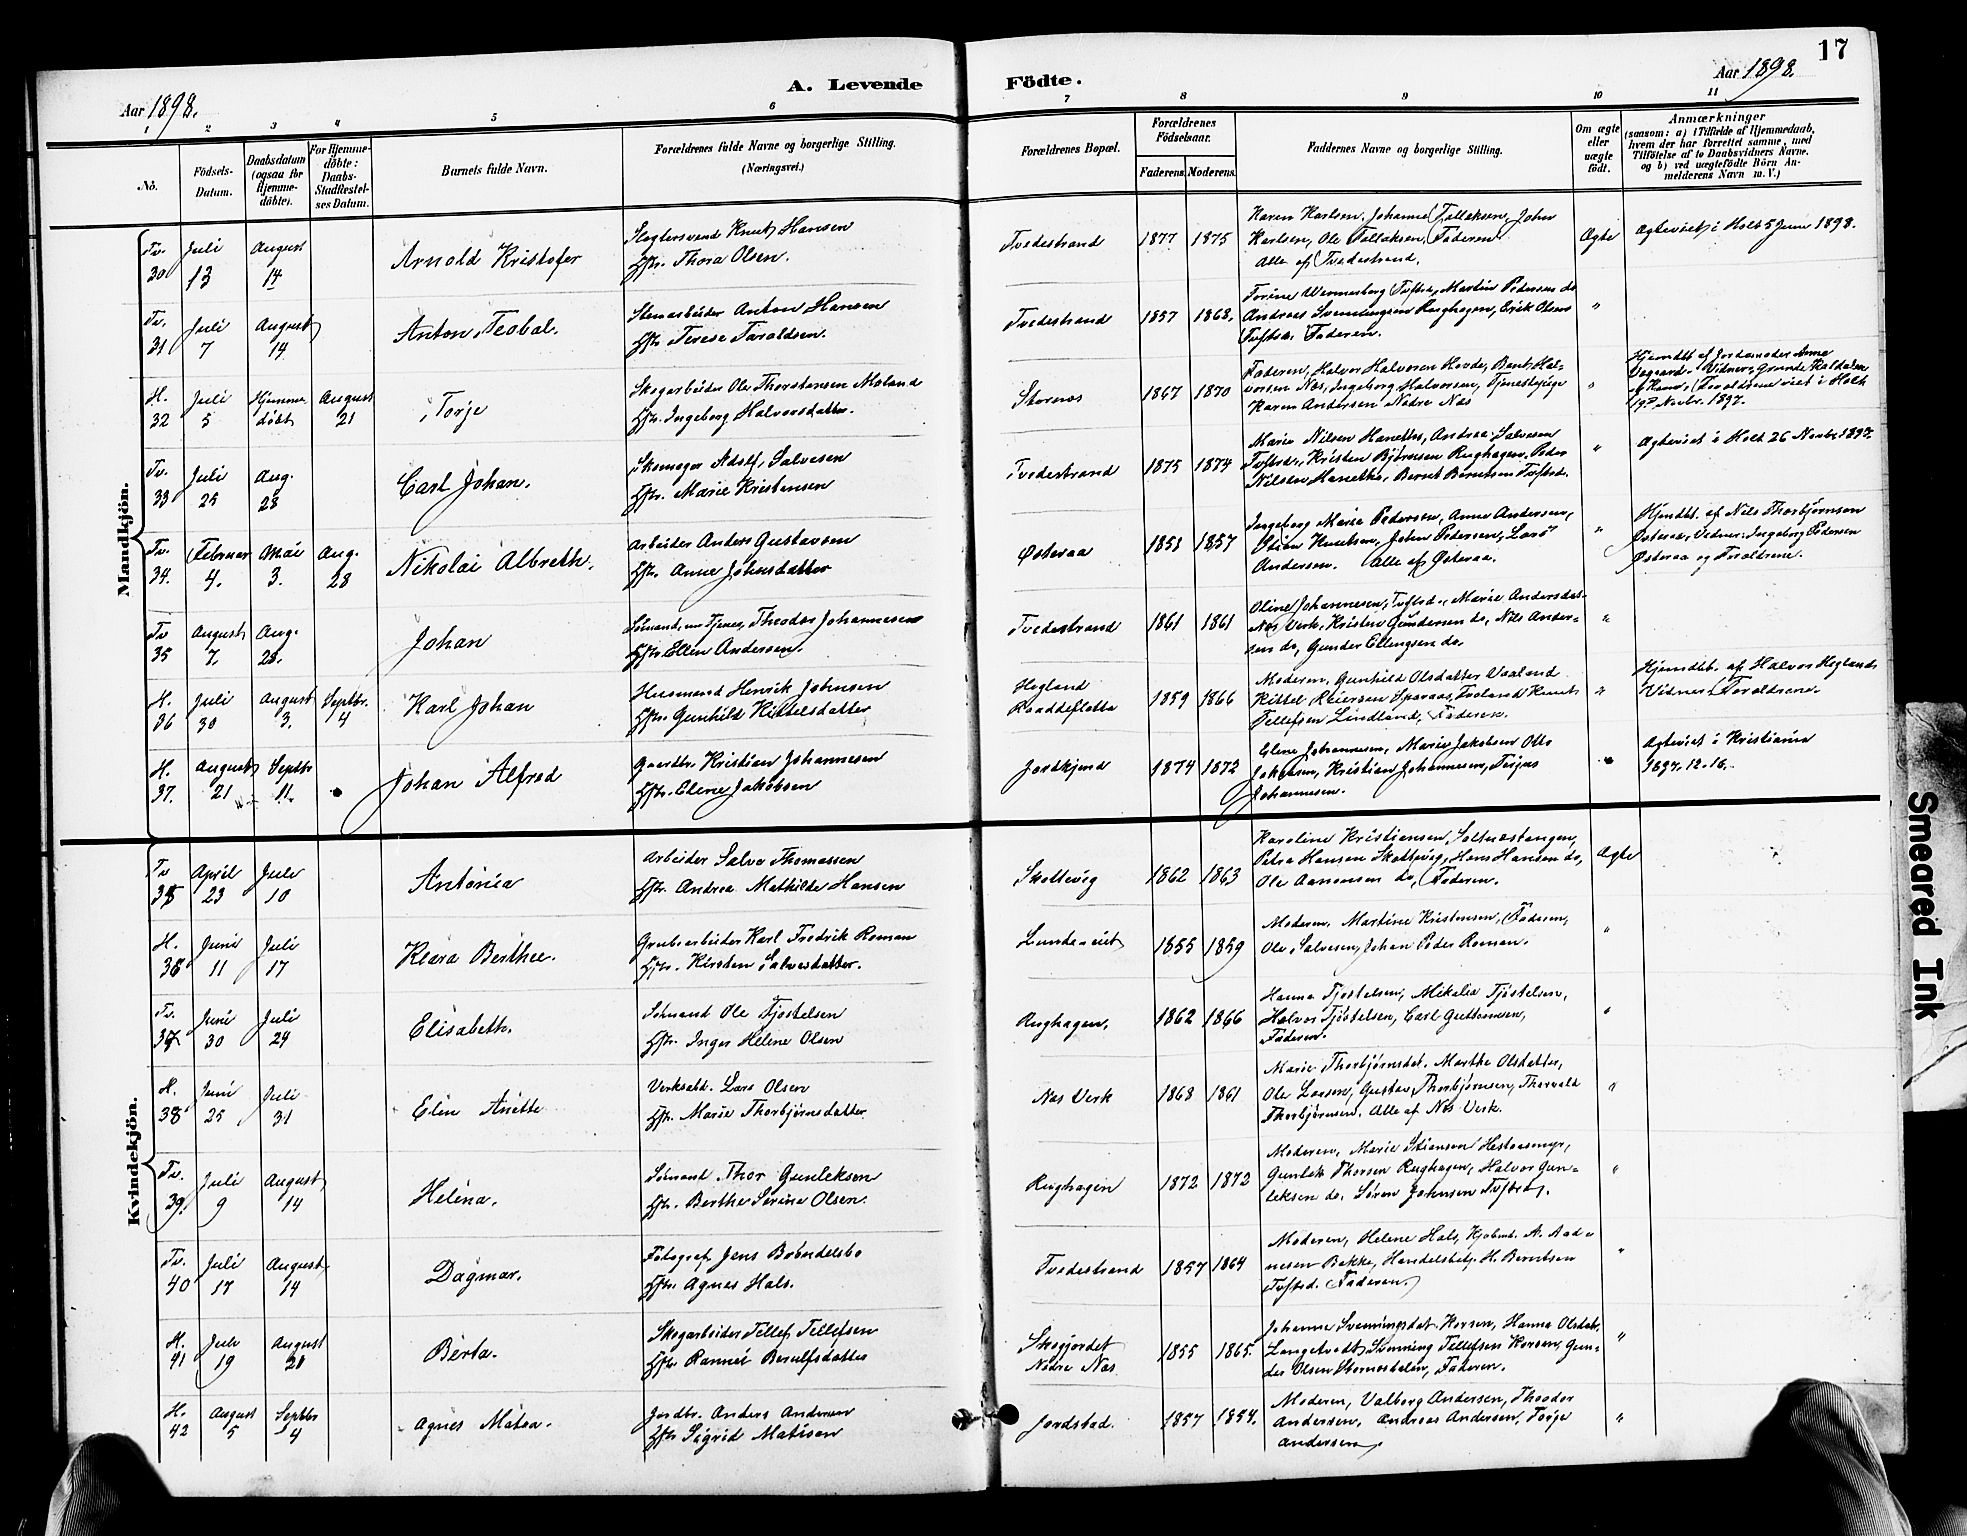 17
A. Levende Födte.
Aar 1898.
Aar 1898.
1 2 3 4 5 6 7 8 9 10 11
No.
Födsels-Datum.
Daabsdatum (ogsaa for Hjemme-döbte).
For Hjemme-döbte: Daabs-Stadfæstel-ses Datum.
Barnets fulde Navn.
Forældrenes fulde Navne og borgerlige Stilling.
(Næringsvei.)
Forældrenes Bopæl.
Forældrenes Födselsaar.
Faderens. Moderens.
Faddernes Navne og borgerlige Stilling.
Om ægte eller uægte födt.
Anmærkninger
(saasom: a) i Tilfælde af Hjemmedaab, hvem der har forrettet samme, med Tilföielse af to Daabsvidners Navne, og b) ved uægtefödte Börn An-melderens Navn m. V.)
Mandkjön.
Tv. 30 Juli 13 August 14 Arnold Kristofer
Slagtersvend Knut Hansen
Hstr. Thora Olsen.
Tvedestrand 1877 1875
Karen Karlsen, Johanne Tallaksen, John
Karlsen, Ole Tallaksen, Faderen.
Alle af Tvedestrand.
Ægte
Ægteviet i Holt 5 Juni 1898.
Tv. 31 Juli 7 August 14 Anton Teobal.
Stenarbeider Anton Hansen
Hstr. Terese Taraldsen.
Tvedestrand 1857 1868.
Andreas Svenningsen Rughagen, Erik Olsen
Faderen.
"
H. 32 Juli 5 Hjemme döbt August 21 Torje
Skogarbeider Ole Thorstensen Moland
Hstr. Ingeborg Halvorsdatter.
Stornes 1867 1870
Faderen, Halvor Halvorsen Hovde, Bent Hal-
vorsen Næs, Ingeborg Halvorsen, Tjenestepige
Karen Andersen Nedre Næs
"
Hjemdbt. af Jordemoder Anne
Forældrene viet i Holt
19de Novbr. 1897.
Tv. 33 Juli 25 Aug. 28 Carl Johan.
Skomager Adolf Salvesen
Hstr. Marie Kristensen
Tvedestrand 1875 1874
Marie Nilsen Hanetho, Andrea Salvesen
Kristen Björnsen Rughagen, Peder
Nilsen Hanetho, Bernt Berntsen
"
Ægteviet i Holt 26 Novbr 1897.
Tv. 34. Februar 4. Mai 3. Aug. 28 Nikolai Albreth.
Arbeider Anders Gustavsen
Hstr. Anne Johnsdatter
Østeraa 1853 1857
Ingeborg Marie Pedersen, Anne Andersen,
Stian Knutsen, John Pedersen, Lars
Andersen. Alle af Østeraa.
"
Hjemdbt. af Nils Thorbjørnsen
Østeraa, Vidner: Ingeborg Pedersen
Østeraa og Forældrene.
Tv 35 August 7. Aug. 28. Johan
Theodor Johannesen
Hstr Ellen Andersen.
Tvedestrand 1861 1861
Oline Johannesen, Marie Andersdat.
Næs Verk, Kristen Gundersen do, Nils Ander-
sen do, Gunder Ellingsen do.
"
H. 36 Juli 30 August 3. Septbr. 4 Karl Johan
Husmand Henrik Johnsen
Hstr. Gunhild Kittelsdatter
Hegland 1859 1866
Moderen, Gunhild Olsdatter Vaaland
Kittel Reiersen
Tellefsen Lindland, Faderen.
"
Hjemdbt. af Halvor Hegland
Vidner: Forældrene.
H. 37. August 21 Septbr 11. Johan Alfred
Gaardbr. Kristian Johannesen
Hstr. Elene Jakobsen
Jordkjend 1874 1872
Elene Johannesen, Marie Jakobsen Otto
Jakobsen, Kristian Johannesen, Torjus
Johannesen.
"
Ægteviet i Kristiania
1897.12.16.
Kvindekjön.
Tv 35 April 23 Juli 10 Antonia
Arbeider Salve Thomassen
Hstr. Andrea Mathilde Hansen
Skottevig 1862 1863
Karoline Kristiansen, Saltnæstangen,
Petra Hansen Skottevig, Hans Hansen do,
Ole Aanonsen do, Faderen.
Ægte
H. 36 Juni 11 Juli 17 Klara Berthee.
Grubearbeider Karl Fredrik Roman
Hstr. Kirsten Salvesdatter.
1855 1859
Moderen, Martine Kristensen, Faderen,
Ole Salvesen, Johan Peder Roman.
"
Tv. 37 Juni 30 Juli 24 Elisabeth.
Sömand Ole Tjöstelsen
Hstr. Inger Helene Olsen
Rughagen, 1862 1866
Hanna Tjöstelsen, Mikalia Tjöstelsen,
Halvor Tjöstelsen, Carl Guttormsen,
Faderen.
"
H. 38 Juni 25 Juli 31 Elin Anette
Verksarb. Lars Olsen
Hstr. Marie Thorbjørnsdatter
Næs Verk 1863 1861
Marie Thorbjørnsdat. Marthe Olsdatter,
Ole Larsen, Gustav Thorbjørnsen, Thorvald
Thorbjørnsen. Alle af Næs Verk.
"
Tv. 39. Juli 9 August 14 Helena.
Sömand Thor Gunleksen
Hstr. Berthe Serine Olsen.
Rughagen 1872 1872
Moderen, Marie Stiansen Hesteasmyr,
Gunlek Thorsen Rughagen, Halvor Gun-
leksen do, Sören Johnsen
"
Tv. 40 Juli 17 August 14 Dagmar.
Fotograf Jens
Hstr Agnes Hals.
Tvedestrand 1857 1864
Moderen, Helene Hals,
Bakke, Handelsbetj. H. Berntsen
Faderen.
"
H. 41 Juli 19 August 21 Berta.
Skogarbeider Tellef Tellefsen
Hstr Rannei Berulfsdatter
Skogjordet Nedre Næs 1855 1865.
Johanne Svenningsdat. Korsen, Hanna Olsdatr.
Svenning Tellefsen Korsen, Gun-
der Olsen Faderen.
"
H. 42 August 5 Septbr 4 Agnes Matea.
Jordbr. Anders Andersen
Hstr Sigrid Matisen
Jordstad. 1857 1854.
Moderen, Valborg Andersen, Theodor
Andersen, Andreas Andersen, Torje
Andersen.
"
Smeared Ink